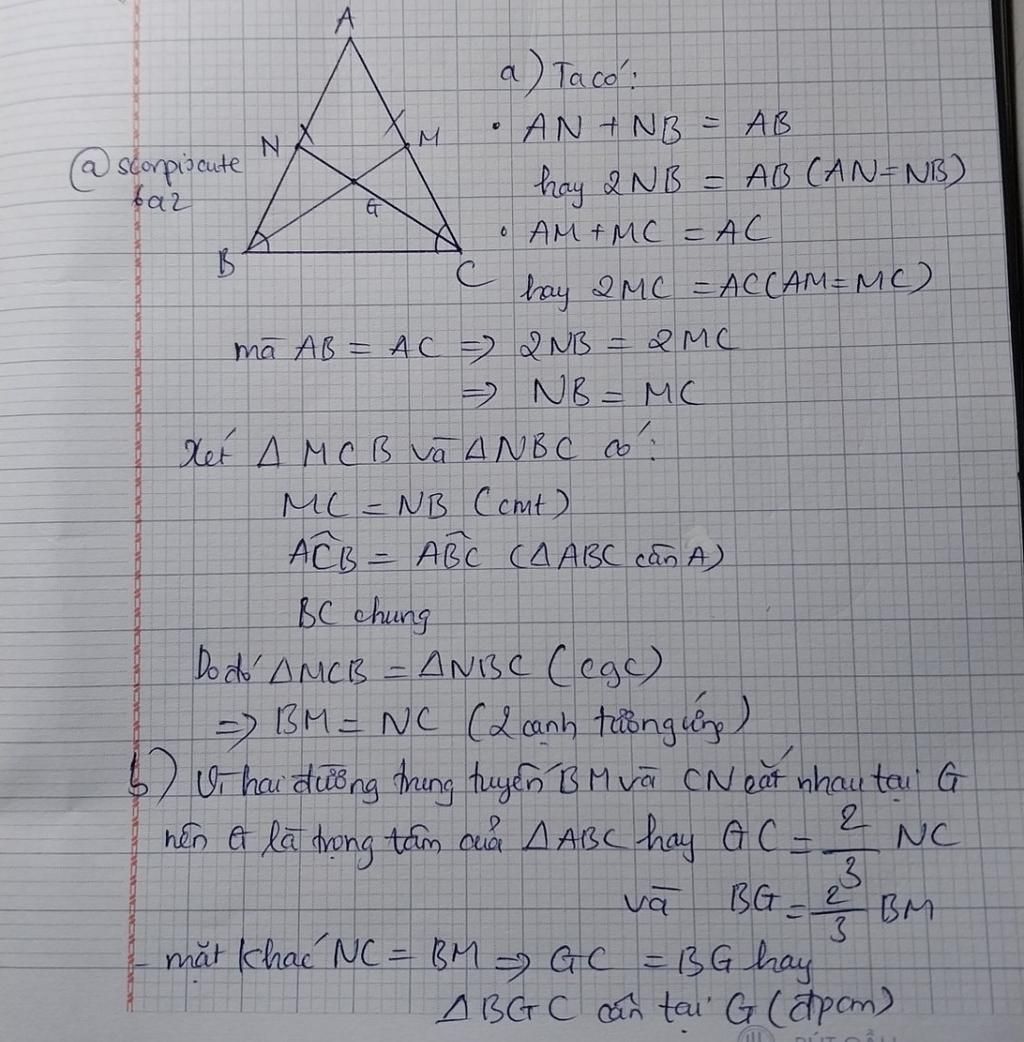 A
a) Ta có:
• AN + NB = AB
N
M
@ scorpiocute
hay 2NB = AB (AN=NB)
6a2
G
• AM + MC = AC
B
C
hay 2MC = AC (AM = MC)
mà AB = AC => 2NB = 2MC
=> NB = MC
Xét Δ MCB và Δ NBC có:
MC = NB (cmt)
ACB̂ = AB̂C (Δ ABC cân A)
BC chung
Do đó Δ MCB = Δ NBC (cgc)
=> BM = NC (2 cạnh tương ứng)
b) Vì hai đường trung tuyến BM và CN cắt nhau tại G
nên G là trọng tâm của Δ ABC hay GC = 2/3 NC
và BG = 2/3 BM
- mặt khác NC = BM => GC = BG hay
Δ BGC cân tại G (đpcm)